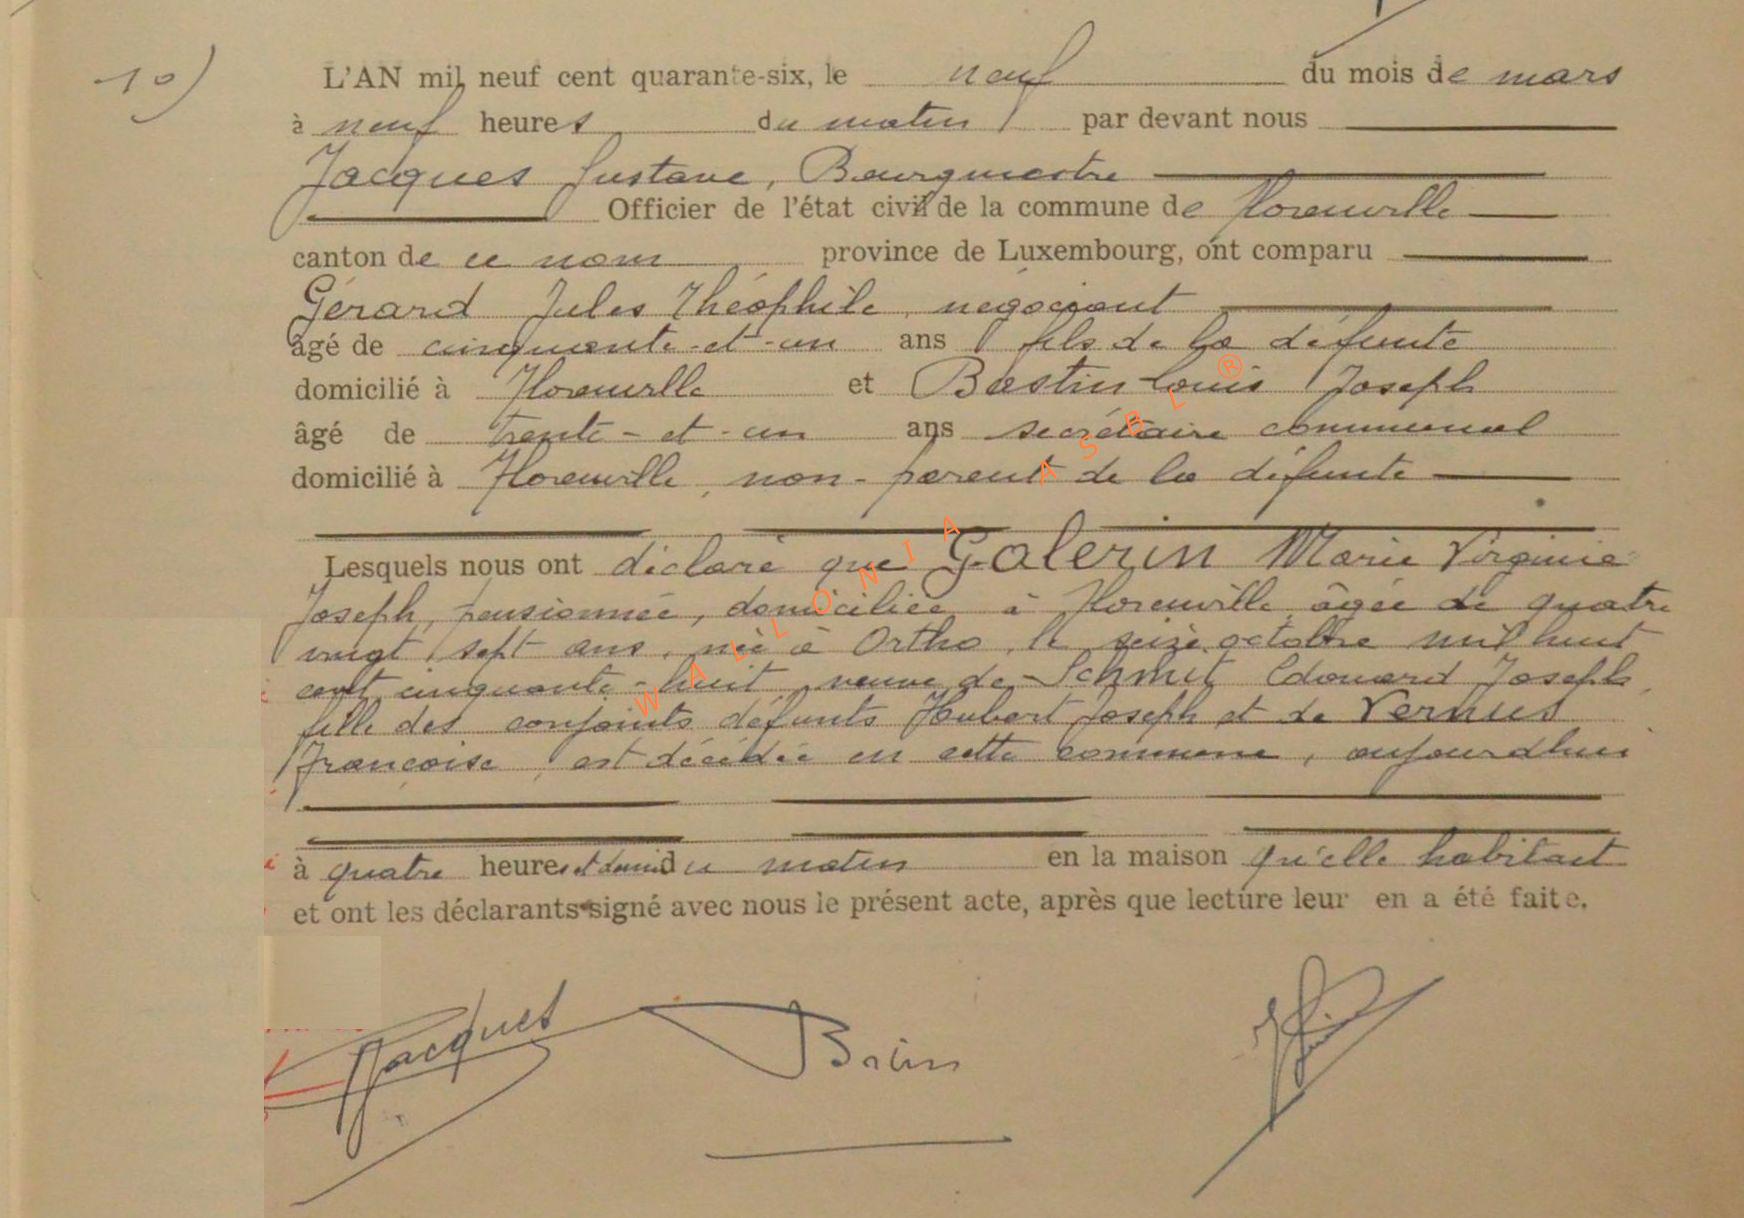 10)
L'AN mil neuf cent quarante-six, le neuf du mois de mars
à neuf heures du matin par devant nous
Jacques Gustave, Bourgmestre
Officier de l'état civil de la commune de Florenville
canton de ce nom province de Luxembourg, ont comparu
Gérard Jules Théophile, négociant
âgé de cinquante-et-un ans fils de la défunte
domicilié à Florenville et Bastin Louis Joseph
âgé de trente-et-un ans secrétaire communal
domicilié à Florenville, non-parent de la défunte
Lesquels nous ont déclaré que Galerin Marie Virginie
Joseph, pensionnée, domiciliée à Florenville âgée de quatre
vingt sept ans, née à Ortho, le seize octobre mil huit
cent cinquante-huit, veuve de Schmit Edouard Joseph,
fille des conjoints défunts Hubert Joseph et de Vernus
Françoise, est décédée en cette commune, aujourdhui
à quatre heures et demi du matin en la maison qu'elle habitait
et ont les déclarants signé avec nous le présent acte, après que lecture leur en a été faite.
Jacques
WALLONIA ASBL ®